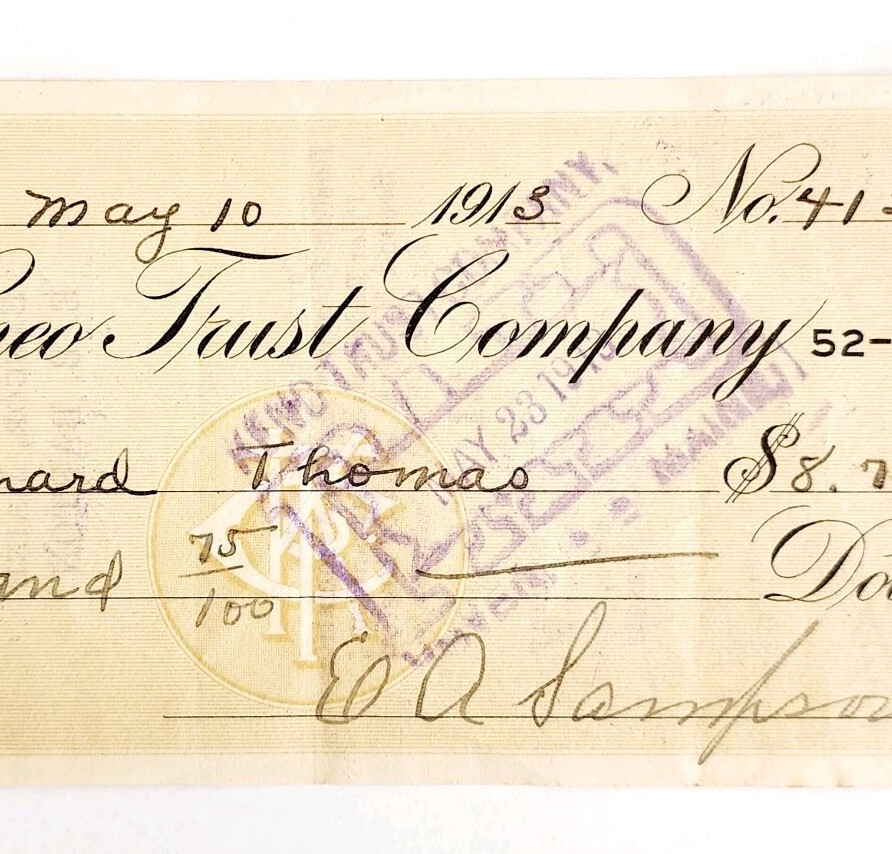 May 10 1913 No. 41-
neo Trust Company 52-
nard Thomas $8.7
and 75/100 Do
E A Sampso
TRUST COMPANY,
MAY 23 191
MAINE